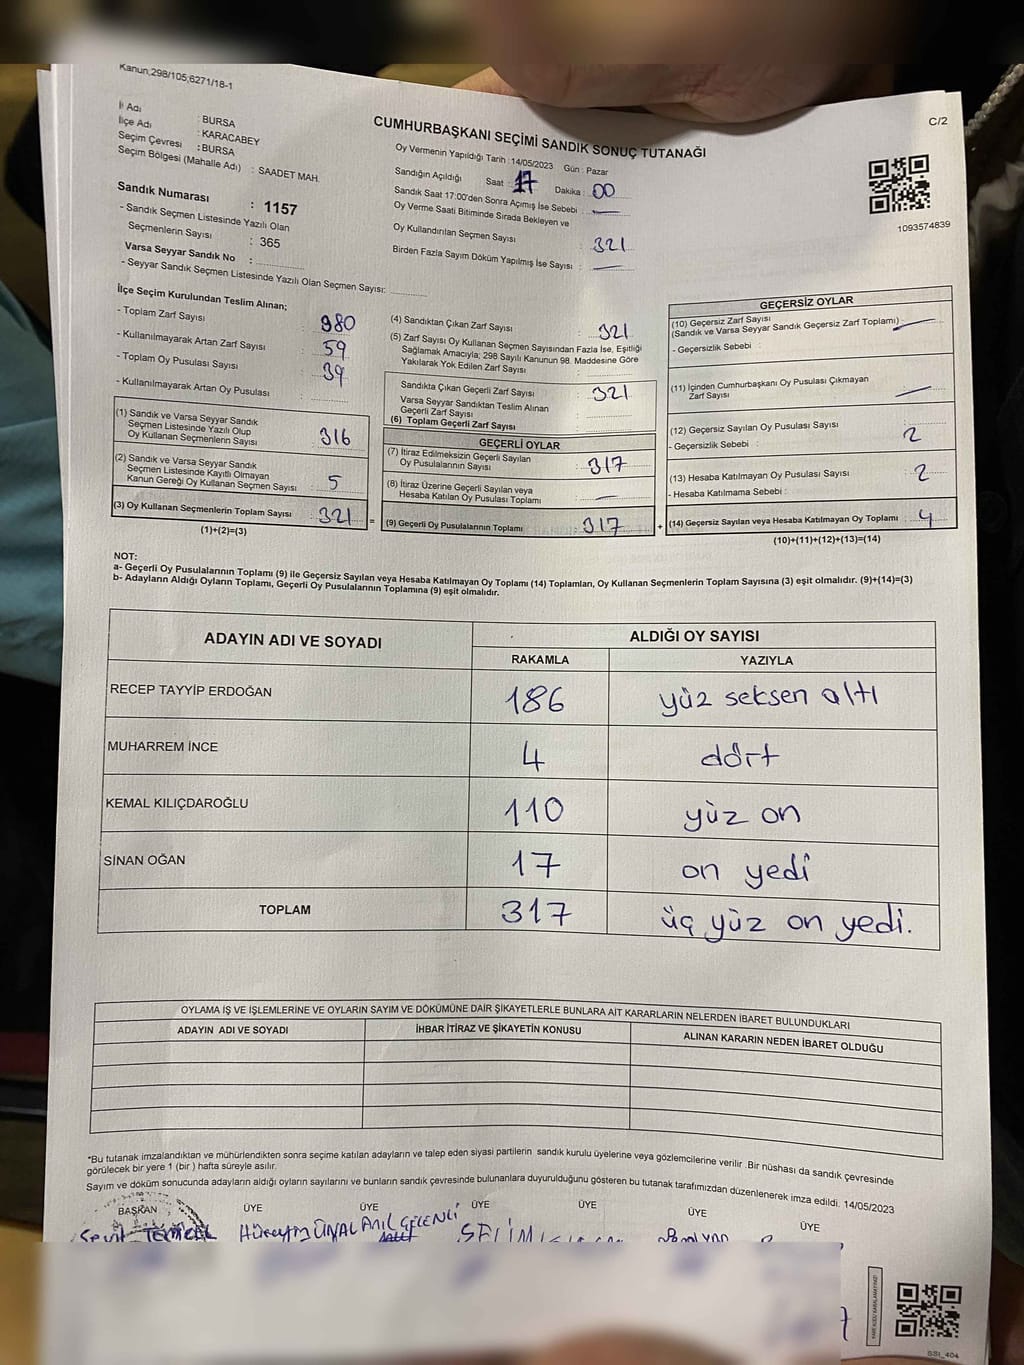 Kanun;298/105;6271/18-1
C/2
CUMHURBAŞKANI SEÇİMİ SANDIK SONUÇ TUTANAĞI
İl Adı : BURSA
İlçe Adı : KARACABEY
Seçim Çevresi : BURSA
Seçim Bölgesi (Mahalle Adı) : SAADET MAH.
Sandık Numarası : 1157
- Sandık Seçmen Listesinde Yazılı Olan
Seçmenlerin Sayısı : 365
Varsa Seyyar Sandık No :
- Seyyar Sandık Seçmen Listesinde Yazılı Olan Seçmen Sayısı:
Oy Vermenin Yapıldığı Tarih : 14/05/2023 Gün : Pazar
Sandığın Açıldığı Saat : 17 Dakika : 00
Sandık Saat 17:00'den Sonra Açımış İse Sebebi :
Oy Verme Saati Bitiminde Sırada Bekleyen ve
Oy Kullandırılan Seçmen Sayısı : 321
Birden Fazla Sayım Döküm Yapılmış İse Sayısı :
1093574839
İlçe Seçim Kurulundan Teslim Alınan;
- Toplam Zarf Sayısı : 980
- Kullanılmayarak Artan Zarf Sayısı : 59
- Toplam Oy Pusulası Sayısı : 39
- Kullanılmayarak Artan Oy Pusulası :
(1) Sandık ve Varsa Seyyar Sandık
Seçmen Listesinde Yazılı Olup
Oy Kullanan Seçmenlerin Sayısı : 316
(2) Sandık ve Varsa Seyyar Sandık
Seçmen Listesinde Kayıtlı Olmayan
Kanun Gereği Oy Kullanan Seçmen Sayısı : 5
(3) Oy Kullanan Seçmenlerin Toplam Sayısı : 321
(1)+(2)=(3)
(4) Sandıktan Çıkan Zarf Sayısı : 321
(5) Zarf Sayısı Oy Kullanan Seçmen Sayısından Fazla İse, Eşitliği
Sağlamak Amacıyla; 298 Sayılı Kanunun 98. Maddesine Göre
Yakılarak Yok Edilen Zarf Sayısı :
Sandıkta Çıkan Geçerli Zarf Sayısı : 321
Varsa Seyyar Sandıktan Teslim Alınan
Geçerli Zarf Sayısı :
(6) Toplam Geçerli Zarf Sayısı
GEÇERLİ OYLAR
(7) İtiraz Edilmeksizin Geçerli Sayılan
Oy Pusulalarının Sayısı : 317
(8) İtiraz Üzerine Geçerli Sayılan veya
Hesaba Katılan Oy Pusulası Toplamı :
= (9) Geçerli Oy Pusulalarının Toplamı : 317 +
GEÇERSİZ OYLAR
(10) Geçersiz Zarf Sayısı
(Sandık ve Varsa Seyyar Sandık Geçersiz Zarf Toplamı)
- Geçersizlik Sebebi :
(11) İçinden Cumhurbaşkanı Oy Pusulası Çıkmayan
Zarf Sayısı :
(12) Geçersiz Sayılan Oy Pusulası Sayısı : 2
- Geçersizlik Sebebi :
(13) Hesaba Katılmayan Oy Pusulası Sayısı : 2
- Hesaba Katılmama Sebebi :
(14) Geçersiz Sayılan veya Hesaba Katılmayan Oy Toplamı : 4
(10)+(11)+(12)+(13)=(14)
NOT:
a- Geçerli Oy Pusulalarının Toplamı (9) ile Geçersiz Sayılan veya Hesaba Katılmayan Oy Toplamı (14) Toplamları, Oy Kullanan Seçmenlerin Toplam Sayısına (3) eşit olmalıdır. (9)+(14)=(3)
b- Adayların Aldığı Oyların Toplamı, Geçerli Oy Pusulalarının Toplamına (9) eşit olmalıdır.
ADAYIN ADI VE SOYADI ALDIĞI OY SAYISI
RAKAMLA YAZIYLA
RECEP TAYYİP ERDOĞAN 186 yüz seksen altı
MUHARREM İNCE 4 dört
KEMAL KILIÇDAROĞLU 110 yüz on
SİNAN OĞAN 17 on yedi
TOPLAM 317 üç yüz on yedi.
OYLAMA İŞ VE İŞLEMLERİNE VE OYLARIN SAYIM VE DÖKÜMÜNE DAİR ŞİKAYETLERLE BUNLARA AİT KARARLARIN NELERDEN İBARET BULUNDUKLARI
ADAYIN ADI VE SOYADI İHBAR İTİRAZ VE ŞİKAYETİN KONUSU ALINAN KARARIN NEDEN İBARET OLDUĞU
*Bu tutanak imzalandıktan ve mühürlendikten sonra seçime katılan adayların ve talep eden siyasi partilerin sandık kurulu üyelerine veya gözlemcilerine verilir .Bir nüshası da sandık çevresinde
görülecek bir yere 1 (bir ) hafta süreyle asılır.
Sayım ve döküm sonucunda adayların aldığı oyların sayılarını ve bunların sandık çevresinde bulunanlara duyurulduğunu gösteren bu tutanak tarafımızdan düzenlenerek imza edildi. 14/05/2023
BAŞKAN ÜYE ÜYE ÜYE ÜYE ÜYE ÜYE
Hüseyin ÜNAL ANIL GELENLİ SELİM
SSI_404